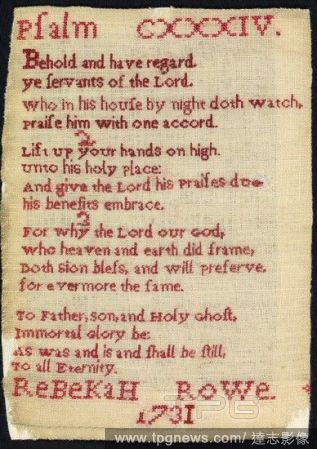 Pſalm CXXXIV.
Behold and have regard
ye ſervants of the Lord.
who in his houſe by night doth watch,
praiſe him with one accord.
2
Lift up your hands on high.
unto his holy place:
And give the Lord his praiſes due
his benefits embrace.
3
For why the Lord our God,
who heaven and earth did frame,
Doth sion bleſs, and will preſerve.
for evermore the ſame.
To Father, son, and Holy Ghoſt,
Immortal Glory be:
As was and is and ſhall be ſtill,
To all Eternity.
ReBeKaH RoWe.
1731
TPG
www.tpgnews.com/ 達志影像